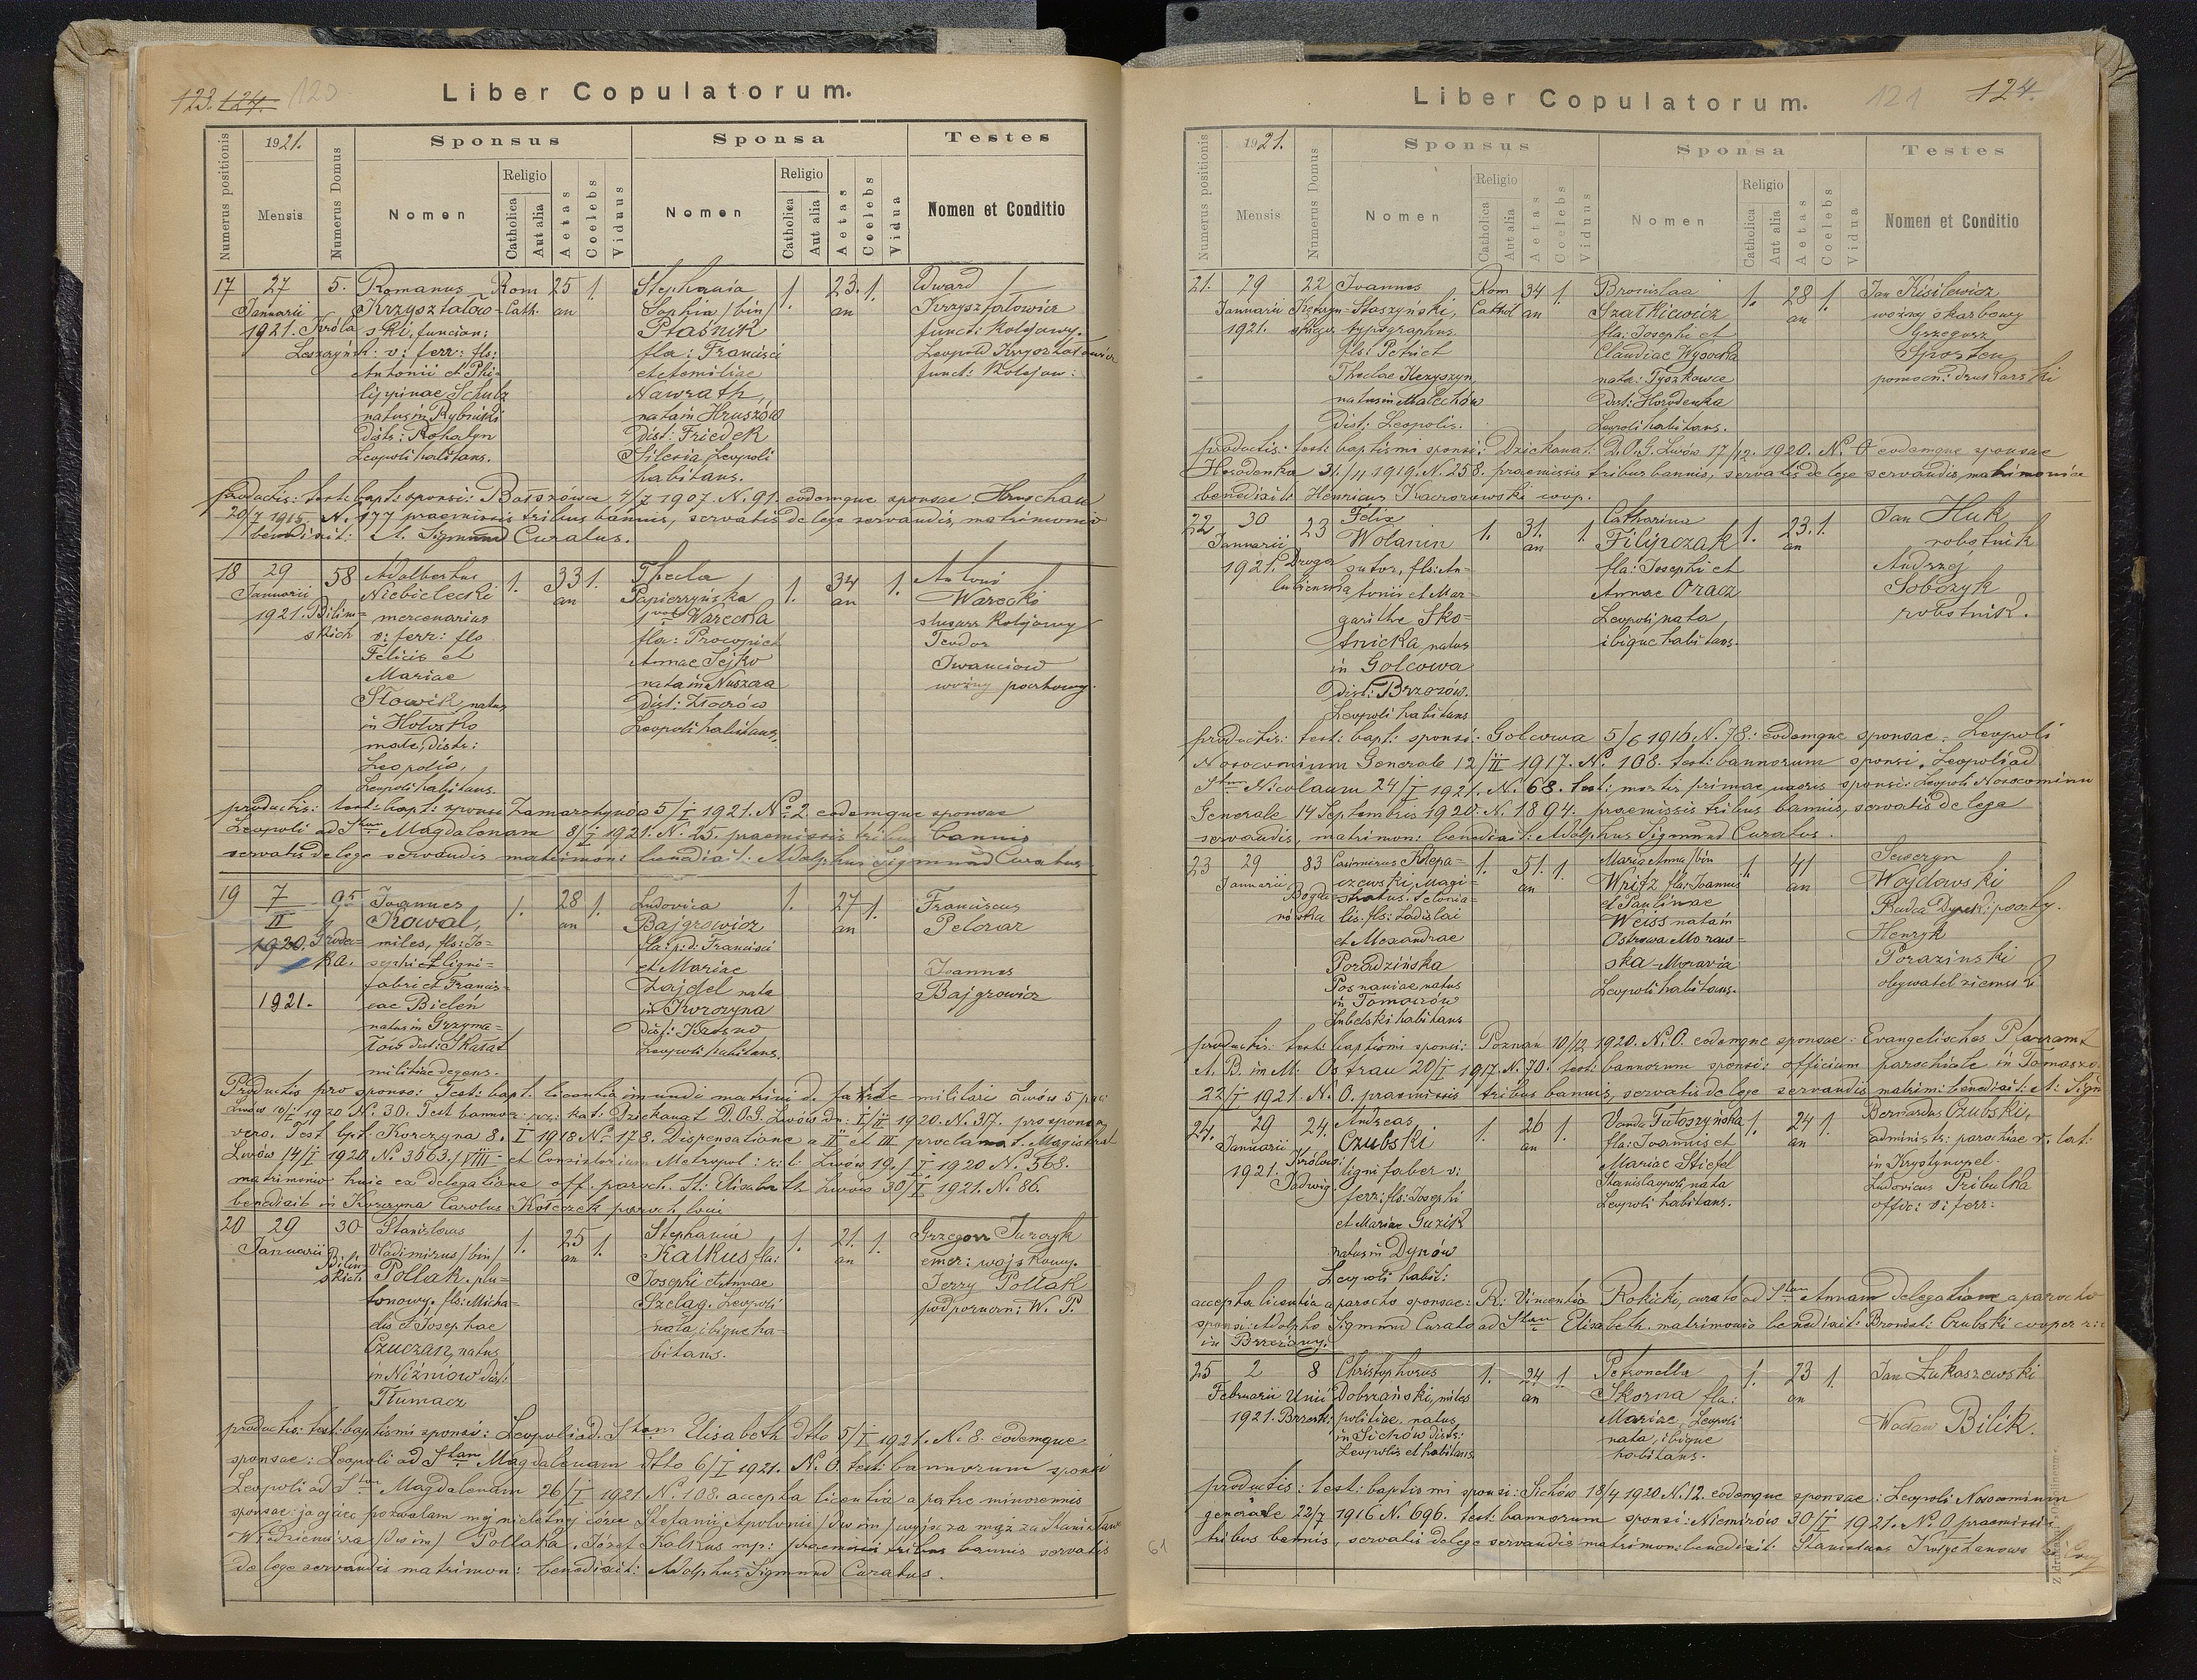 123. 124. 120
Liber Copulatorum.
Numerus positionis
1921.
Mensis
Numerus Domus
Sponsus
Nomen
Religio
Catholica
Aut alia
Aetas
Coelebs
Viduus
Sponsa
Nomen
Religio
Catholica
Aut alia
Aetas
Coelebs
Vidua
Testes
Nomen et Conditio
17 27 Januarii 1921. 5. Króla
Romanus
Krzyształow-
ski, funcion:
v: ferr: fls:
Antonii et Phi-
lippinae Schulz
natus in
distr: Rohatyn
Leopoli habitans.
Rom Cath. 25 an 1.
Stephania
Sophia /bin/
Ptaśnik
fla: Francisci
et Aemiliae
Nawrath,
nata in Hruszów
Dist: Friedek
Silesia Leopoli
habitans.
1. 23. an 1.
Edward
Krzyształowicz
funct: Kolejowy.
Leopold Krzyształowicz
funct: Kolejow:
productis: test: bapt: sponsi: 4/7 1907. N. 91. eodemque sponsae Hruschau
20/7 1915. N. 177 praemissis tribus bannis, servatis de lege servandis, matrimonio
benedixit: A. Sigmund Curatus.
18 29 Januarii 1921. 58 Bilim= skich
Adalbertus
Niebielecki
mercenarius
v: ferr: fls
Felicis et
Mariae
Słowik, natus
in Hołosko
małe, distr:
Leopolis,
Leopoli habitans.
1. 33 an 1.
Thecla
Papierzyńska
1 voto Warecka
fla: Procopii et
Annae Sejko
nata in Nuszcza
dist: Złoczów
Leopoli habitans.
1. 34 an 1.
Antoni
Warecki
slusarz Kolejowy
Teodor
Iwanciow
woźny pocztowy.
productis: test: bapt: sponsi Zamarstynów 5/I 1921. No 2 eodemque sponsae
Leopoli ad Stam Magdalenam 8/I 1921. N. 25. praemissis tribus bannis
servatis de lege servandis matrimon: benedixit: Adolphus Sigmund Curatus
19 7/II 1920. 1921. - 95 Grode= ka.
Joannes
Kowal,
miles, fls: Jo-
sephi et ligni=
fabri et Francis=
cae Bielen
natus in Grzyma=
łów dist: Skałat
militiae degens.
1. 28 an 1.
Ludovica
Bajgrowicz
fla: p: d: Francisci
et Mariae
Zajdel nata
in Korczyna
Dist: Krosno
Leopoli habitans.
1. 27 an 1.
Franciscus
Pelczar
Joannes
Bajgrowicz
Productis pro sponso: Test: bapt. licentia ineundi matrimonii d.
Lwów 10/I 1920 N. 30. Test bannor: rz: kat: Dziekanat D.O.G. Lwów dn: I/II 1920. N. 317. pro sponsa
vero. Test bpt: Korczyna 8. I 1918 No 178. Dispensatione a II et III proclamat. Magistrat
Lwów 14/I 1920. No 3563./VIII - et Consistorium Metropol: r: l: Lwów 19./I 1920 No 568.
matrimonio huic ex delegatione off. paroch. St: Elisabeth Lwów 30/I 1921. N. 86.
benedixit in Korczyna Carolus paroch loci
20 29 Januarii 30 Bilin= skich
Stanislaus
Vladimirus /bin/
Pollak. plu=
tonowy. fls: Micha=
elis et Josephae
Czuczak, natus
in Niżniów dist:
Tłumacz
1. 25 an 1.
Stephania
Kalkus fla:
Josephi et Annae
Szeląg. Leopoli
nata, ibique ha=
bitans.
1. 21. an 1.
Grzegorz Jurczyk
emer: wojskowy.
Jerzy Pollak
podporucn: W. P.
productis: test: baptismi sponsi: Leopoli ad. Stam Elisabeth dtto 5/I 1921. N. 8. eodemque
sponsae: Leopoli ad Stam Magdalenam dtto 6/I 1921. N. 0. test: bannorum sponsi
Leopoli ad Stam Magdalenam 26/I 1921 N. 108. accepta licentia a patre minorennis
sponsae: ja ojciec pozwalam mej nieletniej córce Stefanii Apolonii /dw im/ wyjść za mąż za Stanisława
Włodzimirza /dw im/ Pollaka. Józef Kalkus mp: praemissis tribus bannis servatis
de lege servandis matrimon: benedixit: Adolphus Sigmund Curatus.
Liber Copulatorum.
121 124.
Numerus positionis
1921.
Mensis
Numerus Domus
Sponsus
Nomen
Religio
Catholica
Aut alia
Aetas
Coelebs
Viduus
Sponsa
Nomen
Religio
Catholica
Aut alia
Aetas
Coelebs
Vidua
Testes
Nomen et Conditio
21. 29 Januarii 1921. 22
Joannes
Staszyński,
typographus.
fls: Petri et
Theclae Kezyszyn
natus in Malechów
Dist: Leopolis.
Rom Cathol 34 an 1.
Bronislaa
Szatkiewicz
fla: Josephi et
Claudiae Wysocka
nata: Tyszkowce
dist: Horodenka
Leopoli habitans.
1. 28 an 1.
Jan Kisilewicz
woźny skarbowy
Grzegorz
Sposten
pomocn: drukarski
productis: test: baptismi sponsi: Dziekanat: D.O.G. Lwów 17/12. 1920. N. 0 eodemque sponsae
Horodenka 31/11 1919. N. 258. praemissis tribus bannis, servatis de lege servandis, matrimonio
benedixit: Henricus Kaczorowski coop.
22 30 Januarii 1921. 23 Droga lubienska
Felix
Wolanin
sutor, fls: An-
tonii et Mar-
garithe Sko=
tnicka, natus
in Golcowa
dist: Brzozów.
Leopoli habitans
1. 31. an 1.
Catharina
Filipczak
fla: Josephi et
Annae Oracz
Leopoli nata
ibique habitans.
1. 23. an 1.
Jan Huk
robotnik
Andrzej
Sobczyk
robotnik.
productis: test: bapt: sponsi: Golcowa 5/6 1916 N. 78: eodemque sponsae - Leopoli
Nosocomium Generale 12/II 1917. N. 108. test: bannorum sponsi, Leopoli ad
Stum Nicolaum 24/I 1921. N. 68. test: mortis primae uxoris sponsi: Leopoli Nosocomium
Generale 14 Septembris 1920. N. 1894. praemissis tribus bannis, servatis de lege
servandis, matrimon: benedixit: Adolphus Sigmund Curatus.
23 29 Januarii 83 Bogda= nówka
Casimirus Klepa=
czewski, Magi=
stratus. telonia=
lis. fls: Ladislai
et Alexandrae
Porodzińska
Posnaniae, natus
in Tomaszów
Lubelski habitans
1. 51. an 1.
Maria Anna /bin
Writz fla: Joannis
et Paulinae
Weiss nata in
Ostrawa Moraw=
ska - Moravia
Leopoli habitans.
1. 41 an
Seweryn
Wojdowski
Radca Dyrek: poczty.
Henryk
Porazinski
obywatel ziemski
productis: test: baptismi sponsi: Poznan 10/12 1920. N. 0. eodemque sponsae: Evangelisches Pfarramt
A. B. in M: Ostrau 20/I 1917. N. 70. test: bannorum sponsi: officium parochiale in Tomaszo.
22/I 1921. N. 0. praemissis tribus bannis, servatis de lege servandis matrim: benedixit: A: Sigm
24. 29 Januarii 1921. 24. Królowej Jadwig.
Andreas
Czubski
ligni faber v:
ferr: fls: Josephi
et Mariae Guzik
natus in Dynów
Leopoli habit:
1. 26 an 1.
Vanda Fałoszyńska
fla: Joannis et
Mariae Stiefel
Stanislaopoli nata
Leopoli habitans.
1. 24 an 1.
Bernardus Czubski,
administr: parochiae r. lat:
in Krystynopol.
Ludovicus Pribulka
offic: v: ferr:
accepta licentia a parocho sponsae: R: Vincentio Rokicki, curato ad Stam Annam delegatione a parocho
sponsi: Adolpho Sigmund Curato ad Stam Elisabeth. matrimonio benedixit: Bronisl: Czubski cooper r: l
in Brzeżany.
25 2 Februarii 1921. 8 Unii Brzesk:
Christophorus
Dobrzański, miles
politiae, natus
in Sichów distr:
Leopolis et habitans.
1. 24 an 1.
Petronella
Skorna fla:
Mariae, Leopoli
nata, ibique
habitans.
1. 23 an 1.
Jan Łukaszewski
Wacław Bilik.
productis: test: baptismi sponsi: Sichów 18/4 1920 N. 12. eodemque sponsae: Leopoli Nosocomium
generale 22/7 1916 N. 696. test: bannorum sponsi: Niemirów 30/I 1921. N. 0 praemissis
tribus bannis, servatis de lege servandis matrimon: benedixit: Stanislaus
61